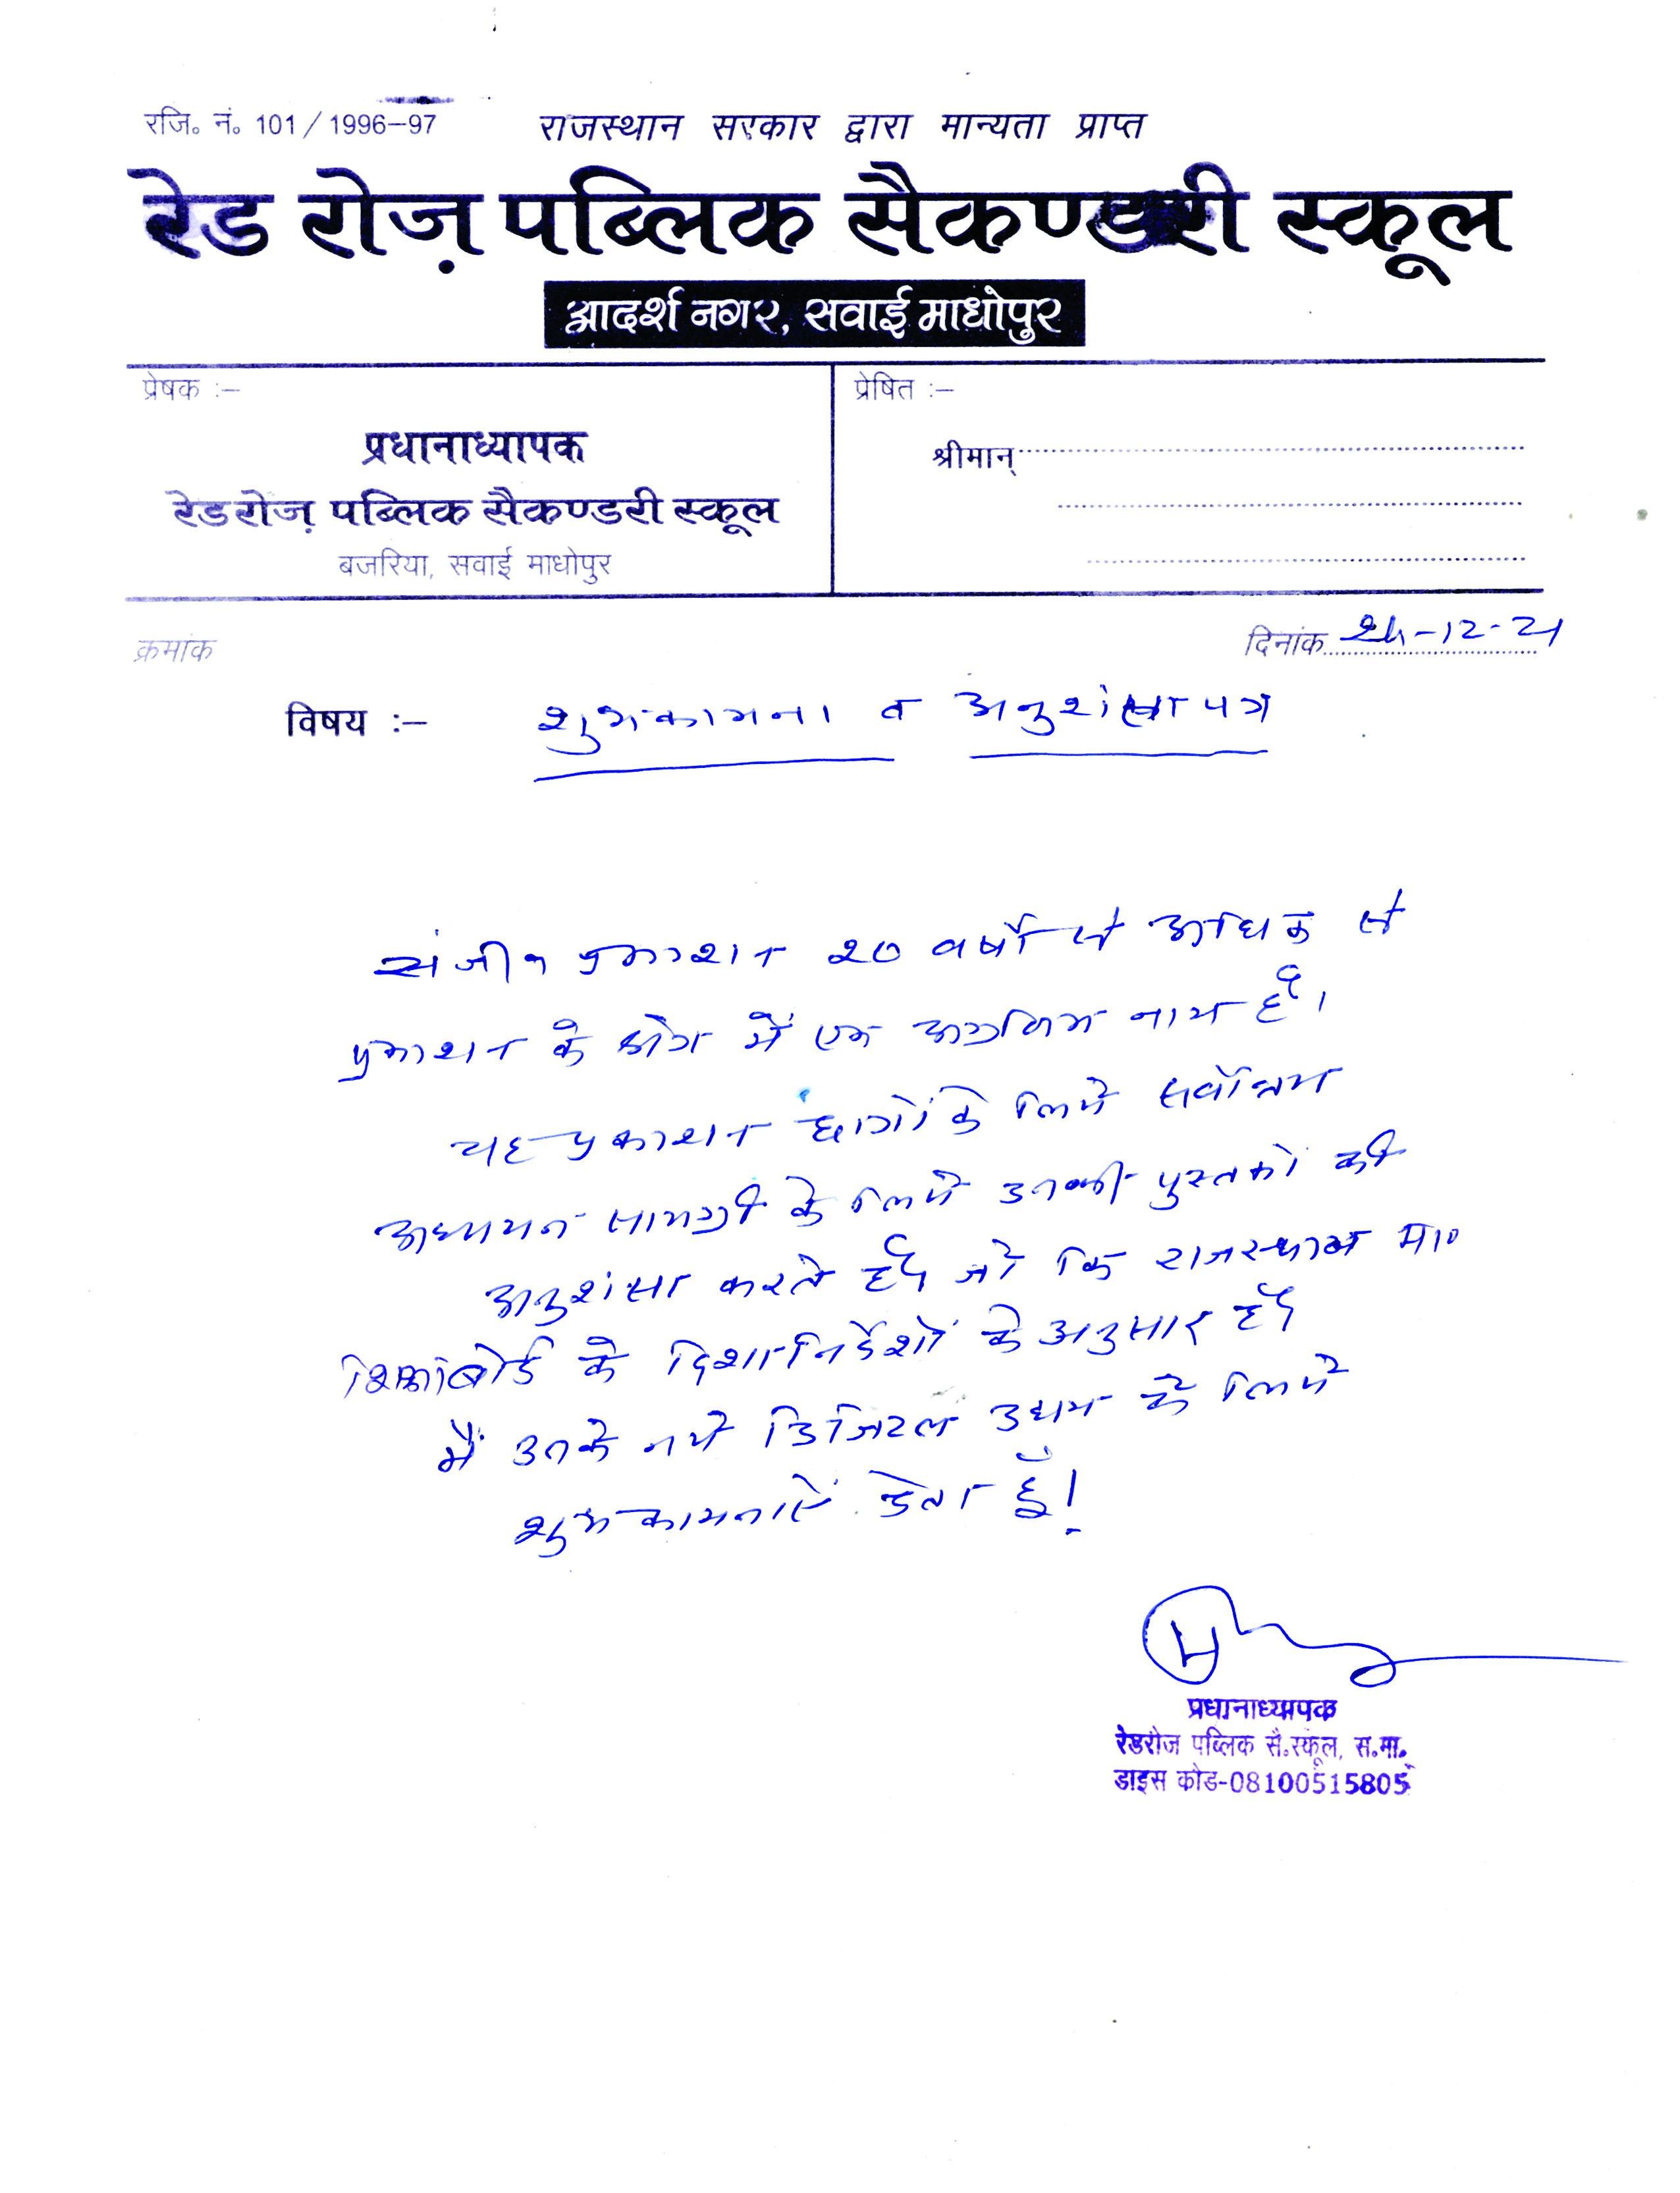 रजि० नं० 101 / 1996–97 राजस्थान सरकार द्वारा मान्यता प्राप्त
रेड रोज़ पब्लिक सैकण्डरी स्कूल
आदर्श नगर, सवाई माधोपुर
प्रेषक :–
प्रधानाध्यापक
रेडरोज़ पब्लिक सैकण्डरी स्कूल
बजरिया, सवाई माधोपुर
प्रेषित :–
श्रीमान्
क्रमांक
दिनांक -12-21
विषय :– शुभकामना व अनुशंसा पत्र
संजीव प्रकाशन 20 वर्षों से अधिक से
प्रकाशन के क्षेत्र में एक अग्रणिम नाम है।
यह प्रकाशन छात्रों के लिये सर्वोत्तम
अध्ययन सामग्री के लिये उनकी पुस्तकों की
अनुशंसा करते हैं जो कि राजस्थान मा०
शिक्षा बोर्ड के दिशा निर्देशों के अनुसार हैं
मैं उनके नये डिजिटल उद्यम के लिये
शुभकामनाऐं देता हूँ!
प्रधानाध्यापक
रेडरोज पब्लिक सै.स्कूल, स.मा.
डाइस कोड-08100515805